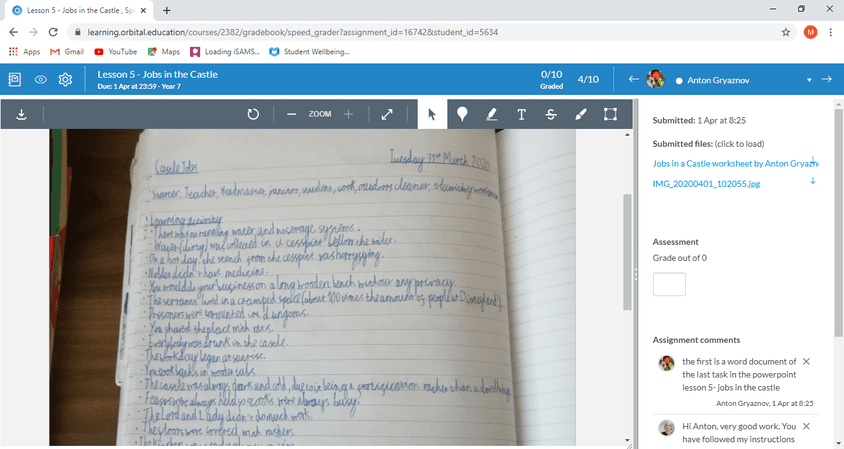 Lesson 5 - Jobs in the Castle , Sp
learning.orbital.education/courses/2382/gradebook/speed_grader?assignment_id=16742&student_id=5634
M
Apps Gmail YouTube Maps Loading iSAMS... Student Wellbeing...
Lesson 5 - Jobs in the Castle
Due: 1 Apr at 23:59 - Year 7
0/10
Graded
4/10
Anton Gryaznov
ZOOM
T
Tuesday 31st March 2020
Castle Jobs
Starter: Teacher, Headmaster, janitor, students, cook, outdoors cleaner, electricity
Learning activity
· There was no running water and no sewage systems.
· Water (dirty) was collected in a cesspit bellow the
· On a hot day, the stench from the cesspit was horryfying.
· Nobles didn't have medicine.
· You would do your business on a long wooden bench without any privacy.
· The servants lived in a cramped space (about 100 times the amount of people at Disneyland)
· Prisoners were tormented in dungeons.
· You shared the place with rats.
· Everybody was drunk in the castle.
· The workday began at sunrise.
· You took baths in wooden tubs
· The castle was always dark and cold, due to it being a fortification rather than a dwelling
· Feasts were always held so cooks were always busy.
· The Lord and Lady didn't do much work.
· The floors were covered with
Submitted: 1 Apr at 8:25
Submitted files: (click to load)
Jobs in a Castle worksheet by Anton Gryazn
IMG_20200401_102055.jpg
Assessment
Grade out of 0
Assignment comments
the first is a word document of
the last task in the powerpoint
lesson 5- jobs in the castle
Anton Gryaznov, 1 Apr at 8:25
Hi Anton, very good work. You
have followed my instructions